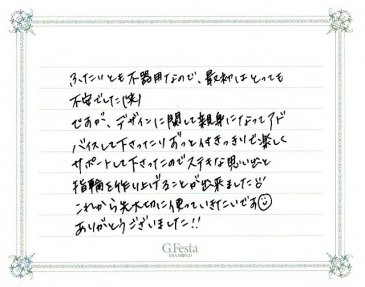 ふたりとも不器用なので、最初はとっても
不安でした(笑)
ですが、デザインに関して親身になってアド
バイスして下さったりずっと付きっきりで楽しく
サポートして下さったのでステキな思い出と
指輪を作り上げることが出来ました!!
これから先大切に使っていきたいです
ありがとうございました!!
G.Festa
DIAMOND